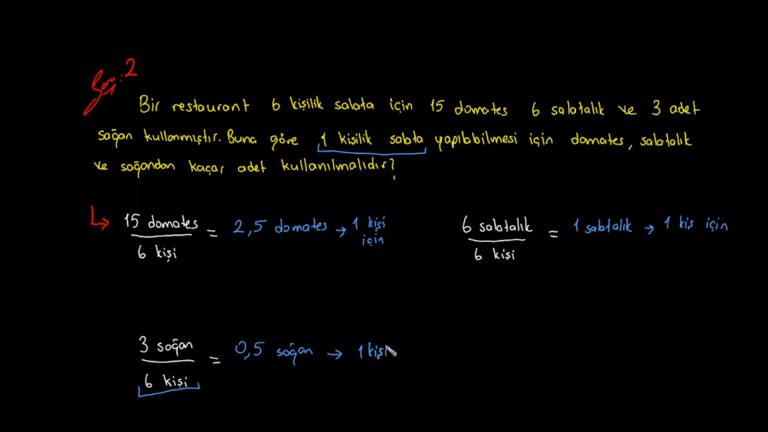 Soru: 2
Bir restaurant 6 kişilik salata için 15 domates 6 salatalık ve 3 adet
soğan kullanmıştır. Buna göre 1 kişilik salata yapılabilmesi için domates, salatalık
ve soğandan kaçar adet kullanılmalıdır?
15 domates / 6 kişi = 2,5 domates → 1 kişi için
6 salatalık / 6 kişi = 1 salatalık → 1 kiş için
3 soğan / 6 kişi = 0,5 soğan → 1 kişi